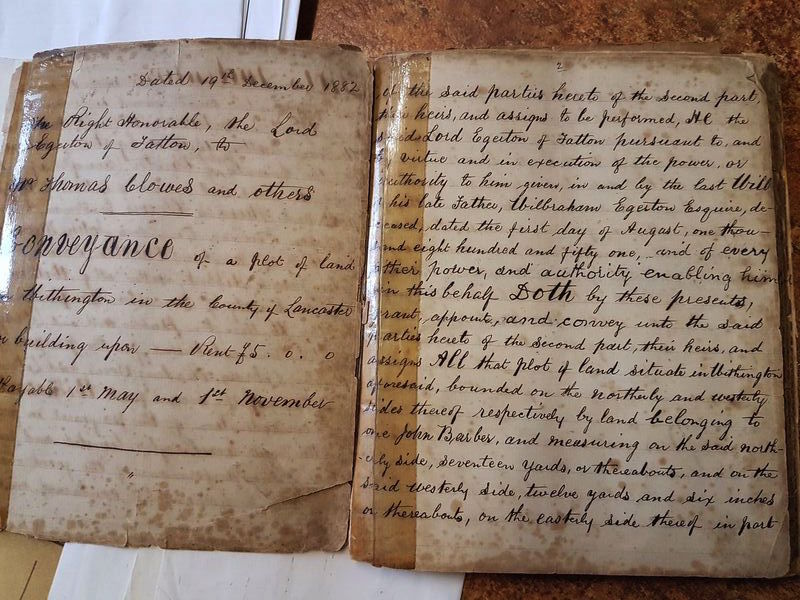 Dated 19th December 1882
The Right Honorable, the Lord
Egerton of Tatton, to
Mr Thomas Clowes and others
Conveyance of a plot of land
Withington in the County of Lancaster
building upon — Rent £5 . 0 . 0
Payable 1st May and 1st November
"
2
of the said parties hereto of the second part,
their heirs, and assigns to be performed, He the
said Lord Egerton of Tatton pursuant to, and
virtue and in execution of the power, or
authority to him given, in and by the last Will
his late Father, Wilbraham Egerton Esquire, de-
ceased, dated the first day of August, one thou-
sand eight hundred and fifty one, and of every
other power, and authority enabling him
in this behalf Doth by these presents,
grant, appoint, and convey unto the said
parties hereto of the second part, their heirs, and
assigns All that plot of land situate in Withington
aforesaid, bounded on the northerly and westerly
sides thereof respectively by land belonging to
one John Barber, and measuring on the said north-
erly side, seventeen yards, or thereabouts, and on the
said westerly side, twelve yards and six inches
or thereabouts, on the easterly side thereof in part